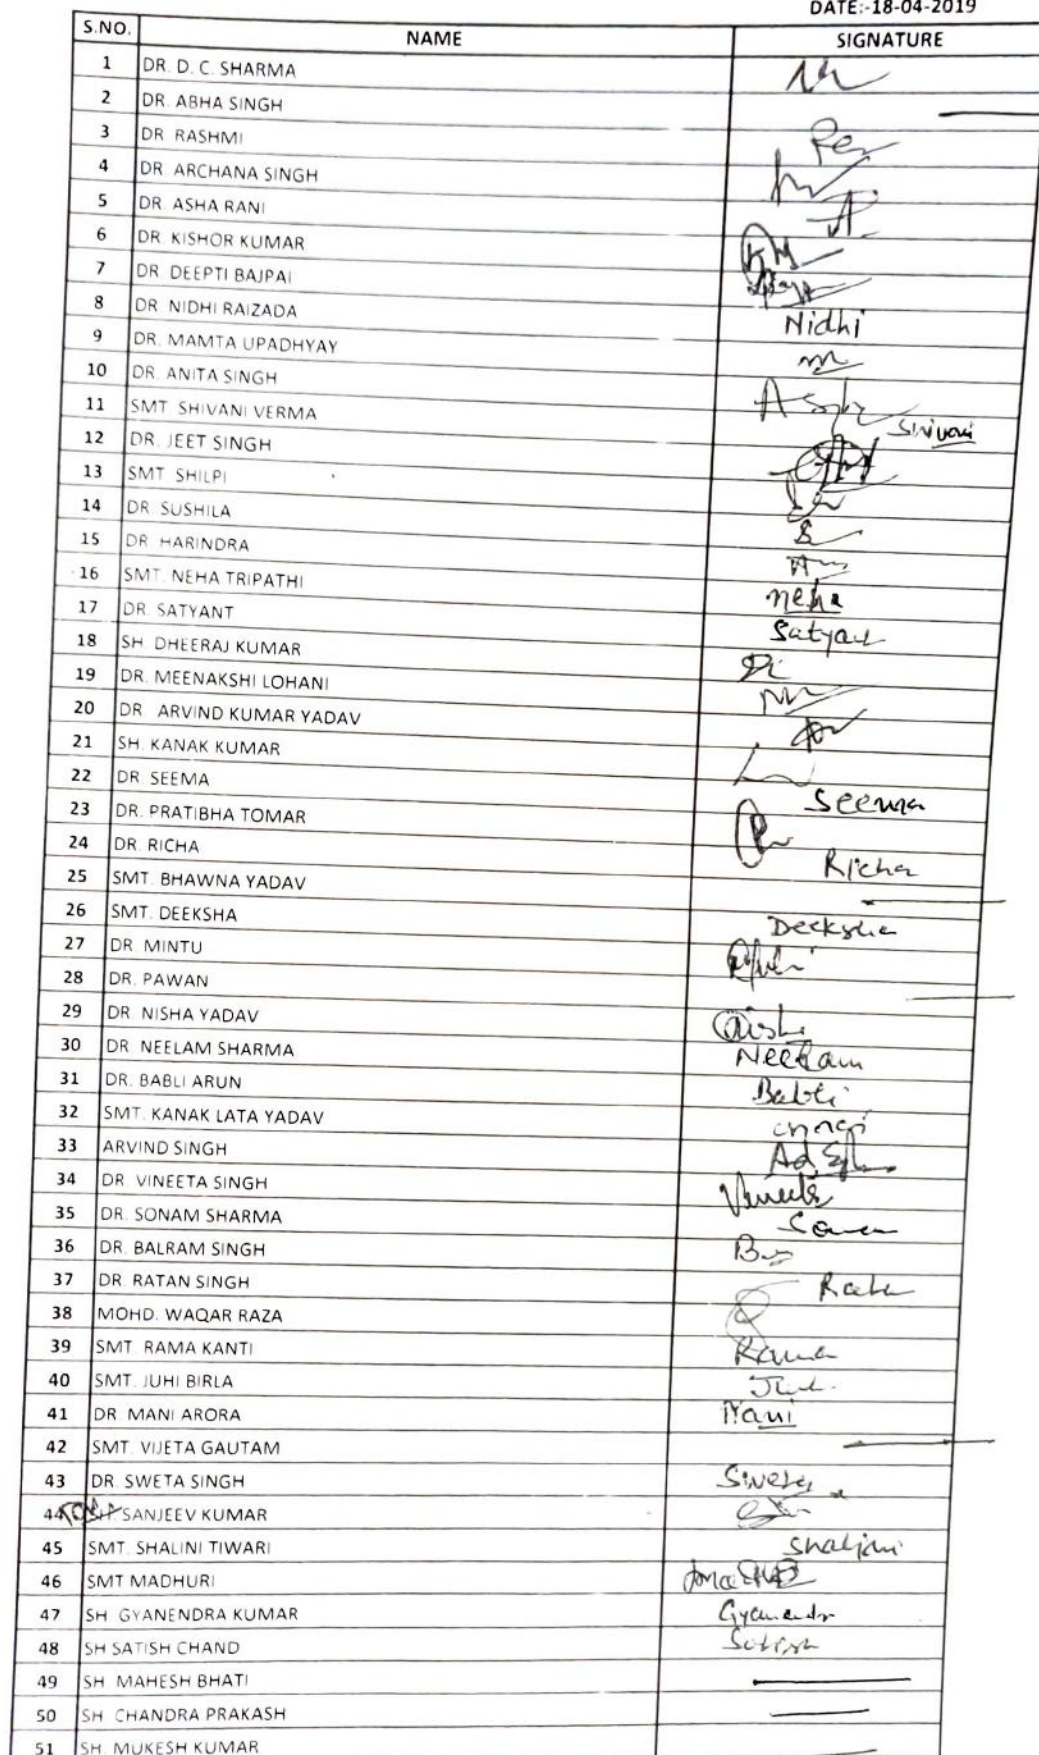 DATE:-18-04-2019
S.NO. NAME SIGNATURE
1 DR. D. C. SHARMA
2 DR. ABHA SINGH
3 DR RASHMI
4 DR ARCHANA SINGH
5 DR. ASHA RANI
6 DR. KISHOR KUMAR
7 DR DEEPTI BAJPAI
8 DR NIDHI RAIZADA Nidhi
9 DR. MAMTA UPADHYAY
10 DR. ANITA SINGH
11 SMT SHIVANI VERMA Shivani
12 DR. JEET SINGH
13 SMT SHILPI
14 DR SUSHILA
15 DR HARINDRA
16 SMT. NEHA TRIPATHI neha
17 DR. SATYANT
18 SH. DHEERAJ KUMAR
19 DR. MEENAKSHI LOHANI
20 DR ARVIND KUMAR YADAV
21 SH. KANAK KUMAR
22 DR SEEMA Seema
23 DR. PRATIBHA TOMAR
24 DR. RICHA Richa
25 SMT. BHAWNA YADAV
26 SMT. DEEKSHA Deeksha
27 DR MINTU
28 DR. PAWAN
29 DR NISHA YADAV
30 DR NEELAM SHARMA Neelam
31 DR. BABLI ARUN Babli
32 SMT. KANAK LATA YADAV
33 ARVIND SINGH
34 DR. VINEETA SINGH
35 DR. SONAM SHARMA
36 DR. BALRAM SINGH
37 DR RATAN SINGH
38 MOHD. WAQAR RAZA
39 SMT. RAMA KANTI Rama
40 SMT. JUHI BIRLA
41 DR. MANI ARORA Mani
42 SMT. VIJETA GAUTAM
43 DR. SWETA SINGH Sweta
44 SANJEEV KUMAR
45 SMT. SHALINI TIWARI Shalini
46 SMT MADHURI
47 SH GYANENDRA KUMAR Gyanendr
48 SH SATISH CHAND Satish
49 SH MAHESH BHATI
50 SH CHANDRA PRAKASH
51 SH. MUKESH KUMAR